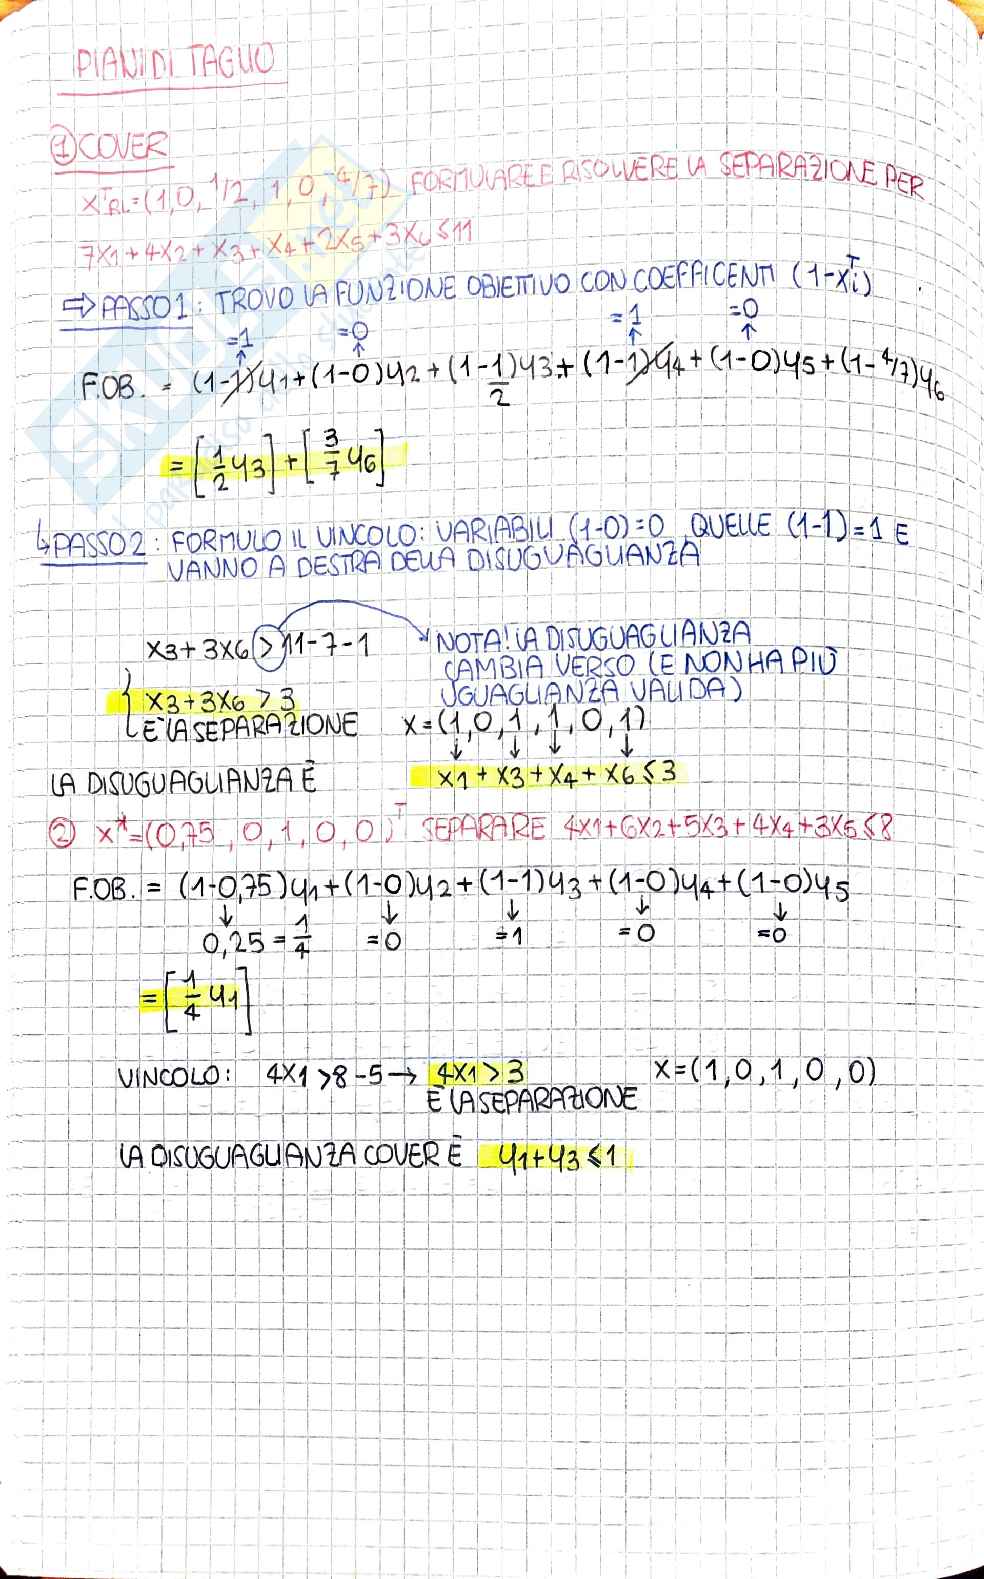 PIANI DI TAGLIO
① COVER
X^T_RL=(1,0,1/2,1,0,4/7) FORMULARE E RISOLVERE LA SEPARAZIONE PER
7X1+4X2+X3+X4+2X5+3X6≤11
⇒PASSO1: TROVO LA FUNZIONE OBIETTIVO CON COEFFICENTI (1-X^T_i)
=1 =0 =1 =0
F.OB. = (1-1)y1+(1-0)y2+(1-1/2)y3+(1-1)y4+(1-0)y5+(1-4/7)y6
=[1/2 y3]+[3/7 y6]
↳PASSO2: FORMULO IL VINCOLO: VARIABILI (1-0)=0, QUELLE (1-1)=1 E
VANNO A DESTRA DELLA DISUGUAGLIANZA
X3+3X6>11-7-1 NOTA! LA DISUGUAGLIANZA
CAMBIA VERSO (E NON HA PIÙ
UGUAGLIANZA VALIDA)
X3+3X6>3
È LA SEPARAZIONE X=(1,0,1,1,0,1)
LA DISUGUAGLIANZA È X1+X3+X4+X6≤3
② X*=(0,75,0,1,0,0)^T SEPARARE 4X1+6X2+5X3+4X4+3X5≤8
F.OB.=(1-0,75)y1+(1-0)y2+(1-1)y3+(1-0)y4+(1-0)y5
0,25=1/4 =0 =1 =0 =0
=[1/4 y1]
VINCOLO: 4X1>8-5→ 4X1>3 X=(1,0,1,0,0)
È LA SEPARAZIONE
LA DISUGUAGLIANZA COVER È y1+y3≤1